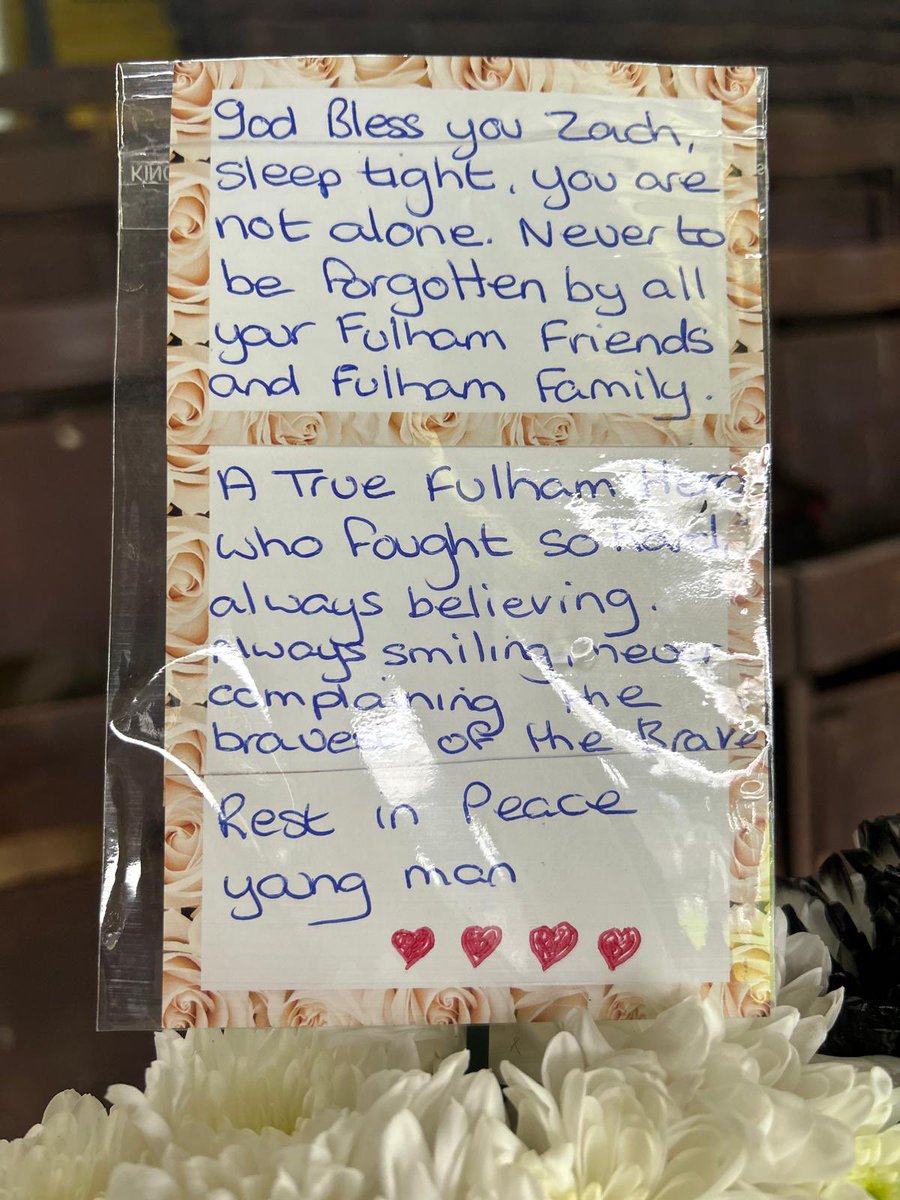 God Bless you Zach,
sleep tight. you are
not alone. Never to
be forgotten by all
your Fulham Friends
and Fulham Family.
A True Fulham Hero
who fought so hard,
always believing.
Always smiling, never
complaining The
bravest of the Brave
Rest in Peace
young man
KING